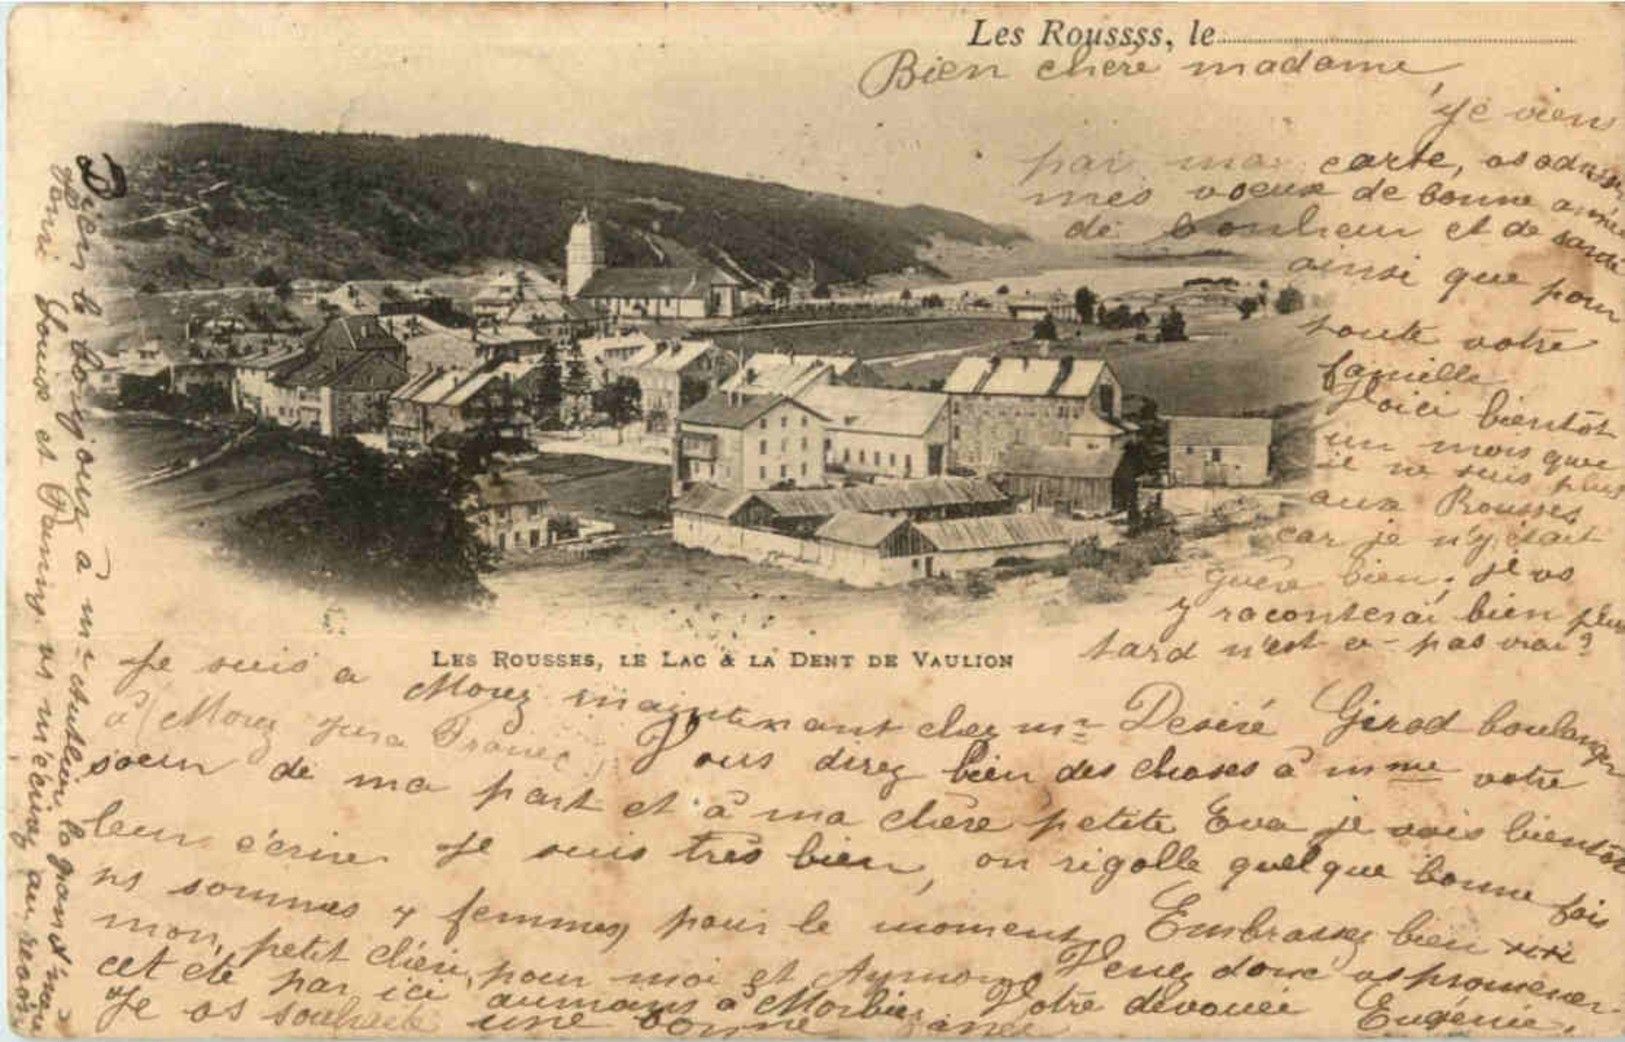 Les Roussss, le
Bien chère madame
Je viens
par ma carte, os adresser
mes voeux de bonne année
de bonheur et de santé
ainsi que pour
toute votre
famille
Voici bientôt
un mois que
je ne suis plus
aux Rousses
car je n'y était
guère bien, je vs
y raconterai bien plus
tard n'est ce pas vrai?
LES ROUSSES, LE LAC & LA DENT DE VAULION
Je suis a Morez maintenant chez mr Desiré Girod boulanger
à (Morez Jura France) Vous direz bien des choses à mme votre
soeur de ma part et à ma chère petite Eva je vais bientôt
leur écrire. Je suis très bien, on rigolle quelque bonne fois
ns sommes 4 femmes pour le moment Embrassez bien
mon petit chéri, pour moi et Aymon Venez donc os promener
cet été par ici aumoins à Morbier Votre dévouée Eugénie.
Je os souhaite une bonne année
Dier le bonjour à me la grand'mère
Louise et vs m'écrirez au revoir